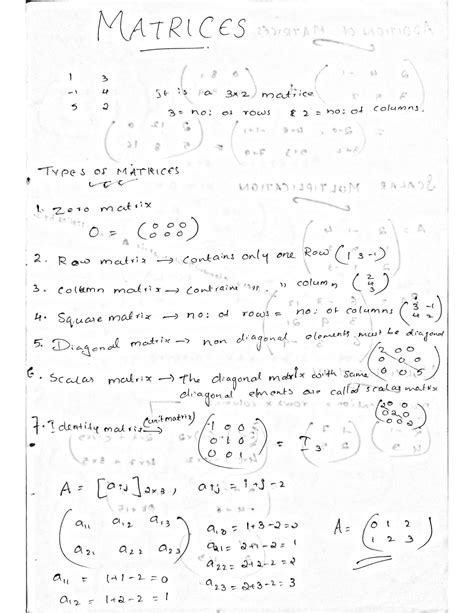 MATRICES
1 3
-1 4 It is a 3x2 matrice
5 2 3 = no: os rows & 2 = no: of columns.
TYPES OF MATRICES
1. Zero matrix
O = (0 0 0
0 0 0)
2. Row matrix → contains only one Row (1 3 -1)
3. column matrix → contains " " column (2
4
3)
4. Square matrix → no: of rows = no: of columns
5. Diagonal matrix → non diagonal elements must be diagonal
(2 0 0
0 0 0
0 0 5)
6. Scalar matrix → The diagonal matrix with same
diagonal elments are called scalar matrix
(2 0 0
0 2 0
0 0 2)
7. Identity matrix (unit matrix) → (1 0 0
0 1 0
0 0 1) = I3
A = [aij] 2x3, aij = i+j-2
(a11 a12 a13
a21 a22 a23)
a11 = 1+1-2 = 0
a12 = 1+2-2 = 1
a13 = 1+3-2=2
a21 = 2+1-2 = 1
a22 = 2+2-2 = 2
a23 = 2+3-2 = 3
A = (0 1 2
1 2 3)